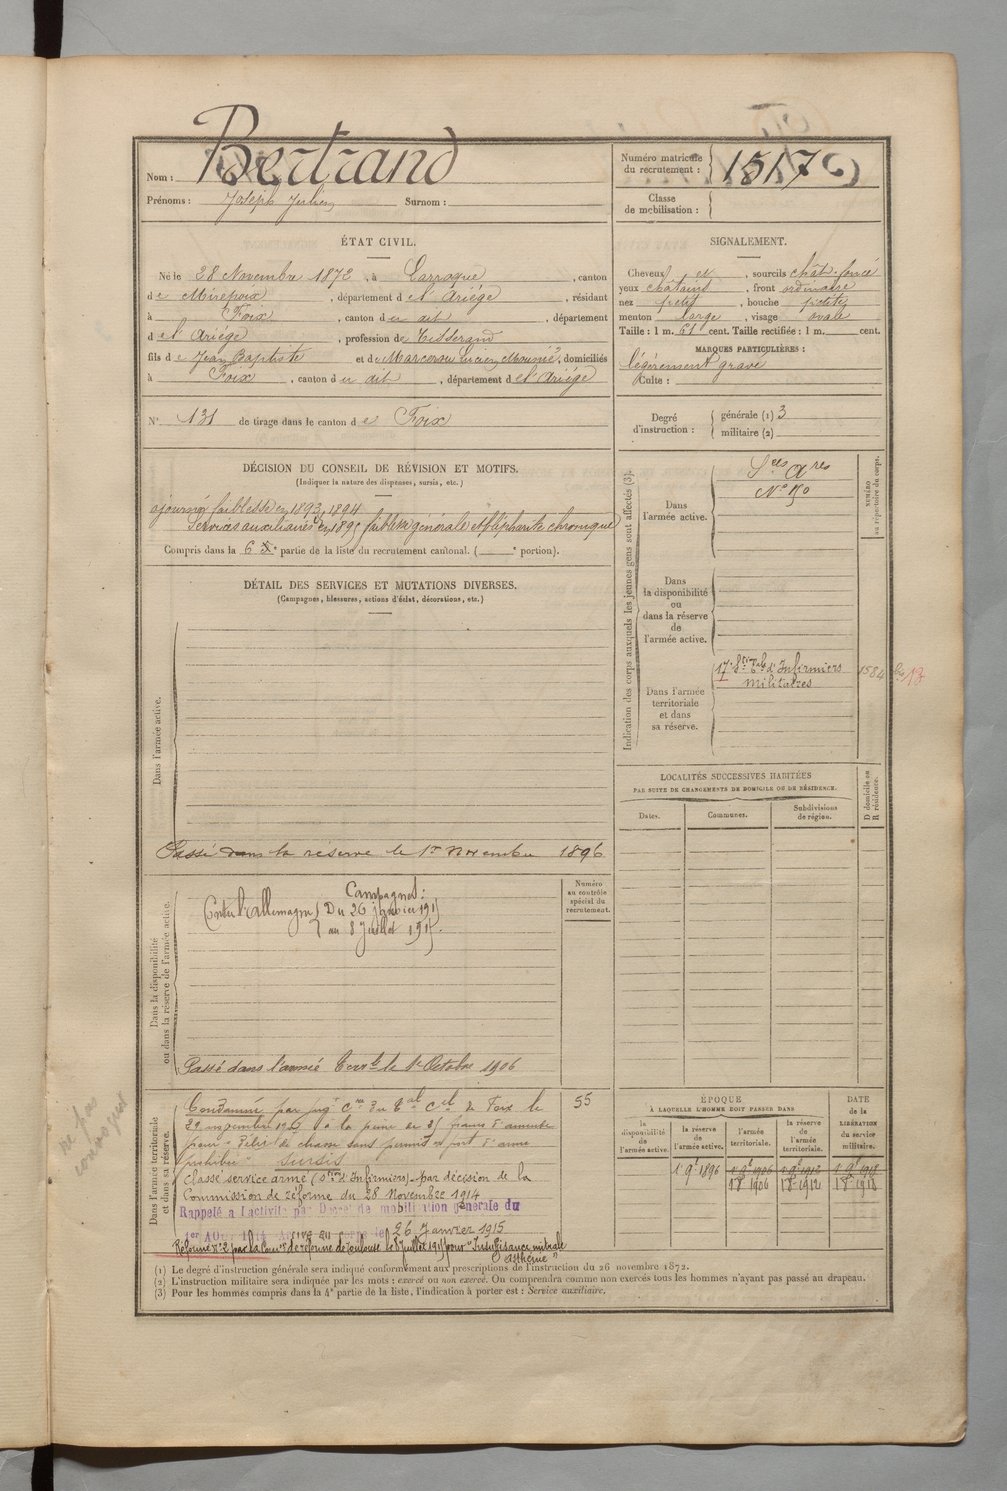 Nom : Bertrand
Prénoms : Joseph Julien Surnom :
Numéro matricule du recrutement : 1517
Classe de mobilisation :
ÉTAT CIVIL.
Né le 28 Novembre 1872, à Larroque, canton
de Mirepoix, département de l'Ariège, résidant
à Foix, canton du dit, département
de l'Ariège, profession de Tisserand
fils de Jean Baptiste et de Marcerou, domiciliés
à Foix, canton du dit, département de l'Ariège
N° 131 de tirage dans le canton de Foix
SIGNALEMENT.
Cheveux et, sourcils chât. foncé
yeux châtains, front ordinaire
nez petit, bouche petite
menton large, visage ovale
Taille : 1 m. 61 cent. Taille rectifiée : 1 m. cent.
MARQUES PARTICULIÈRES :
légèrement gravé
Culte :
Degré d'instruction : générale (1) 3
militaire (2)
DÉCISION DU CONSEIL DE RÉVISION ET MOTIFS.
(Indiquer la nature des dispenses, sursis, etc.)
ajourné faiblesse en 1893, 1894
Services auxiliaires en 1895 faiblesse générale et blépharite chronique
Compris dans la 6e partie de la liste du recrutement cantonal. ( e portion).
DÉTAIL DES SERVICES ET MUTATIONS DIVERSES.
(Campagnes, blessures, actions d'éclat, décorations, etc.)
Dans l'armée active.
Passé dans la réserve le 1er Novembre 1896
Dans la disponibilité ou dans la réserve de l'armée active.
Numéro au contrôle spécial du recrutement.
Campagnes :
Contre l'Allemagne Du 26 janvier 1915
au 8 Juillet 1915.
Passé dans l'armée terrle le 1er Octobre 1906
Dans l'armée territoriale et dans sa réserve.
Condamné par jugt Cre du Bal Cel de Foix le 55
29 novembre à la peine de 25 francs d'amende
pour "Délit de chasse sans permis et port d'arme
prohibée" sursis
Classé service armé (Son d'Infirmiers) par décision de la
Commission de réforme du 28 Novembre 1914
Rappelé à l'activité par Décret de mobilisation générale du
1er AOUT 1914 Arrivé au corps le 26 Janvier 1915
Réformé n° 2 par la Comon de réforme de Toulouse le 8 juillet 1915 pour "Insuffisance mitrale
asthénie"
Indication des corps auxquels les jeunes gens sont affectés (3).
NUMÉRO au répertoire du corps.
Dans l'armée active.
Sces Ares
N° 150
Dans la disponibilité ou dans la réserve de l'armée active.
Dans l'armée territoriale et dans sa réserve.
17e Son Terle d'Infirmiers 1584
militaires
LOCALITÉS SUCCESSIVES HABITÉES
PAR SUITE DE CHANGEMENTS DE DOMICILE OU DE RÉSIDENCE.
Dates. Communes. Subdivisions de région. D domicile ou R résidence.
ÉPOQUE
À LAQUELLE L'HOMME DOIT PASSER DANS
la disponibilité de l'armée active. la réserve de l'armée active. l'armée territoriale. la réserve de l'armée territoriale. DATE de la LIBÉRATION du service militaire.
1 9e 1896 1 9e 1906 1 9e 1912 1 9e 1918
1 8e 1906 1 8e 1912 1 8e 1918
ne pas
convoquer
(1) Le degré d'instruction générale sera indiqué conformément aux prescriptions de l'instruction du 26 novembre 1872.
(2) L'instruction militaire sera indiquée par les mots : exercé ou non exercé. On comprendra comme non exercés tous les hommes n'ayant pas passé au drapeau.
(3) Pour les hommes compris dans la 4e partie de la liste, l'indication à porter est : Service auxiliaire.